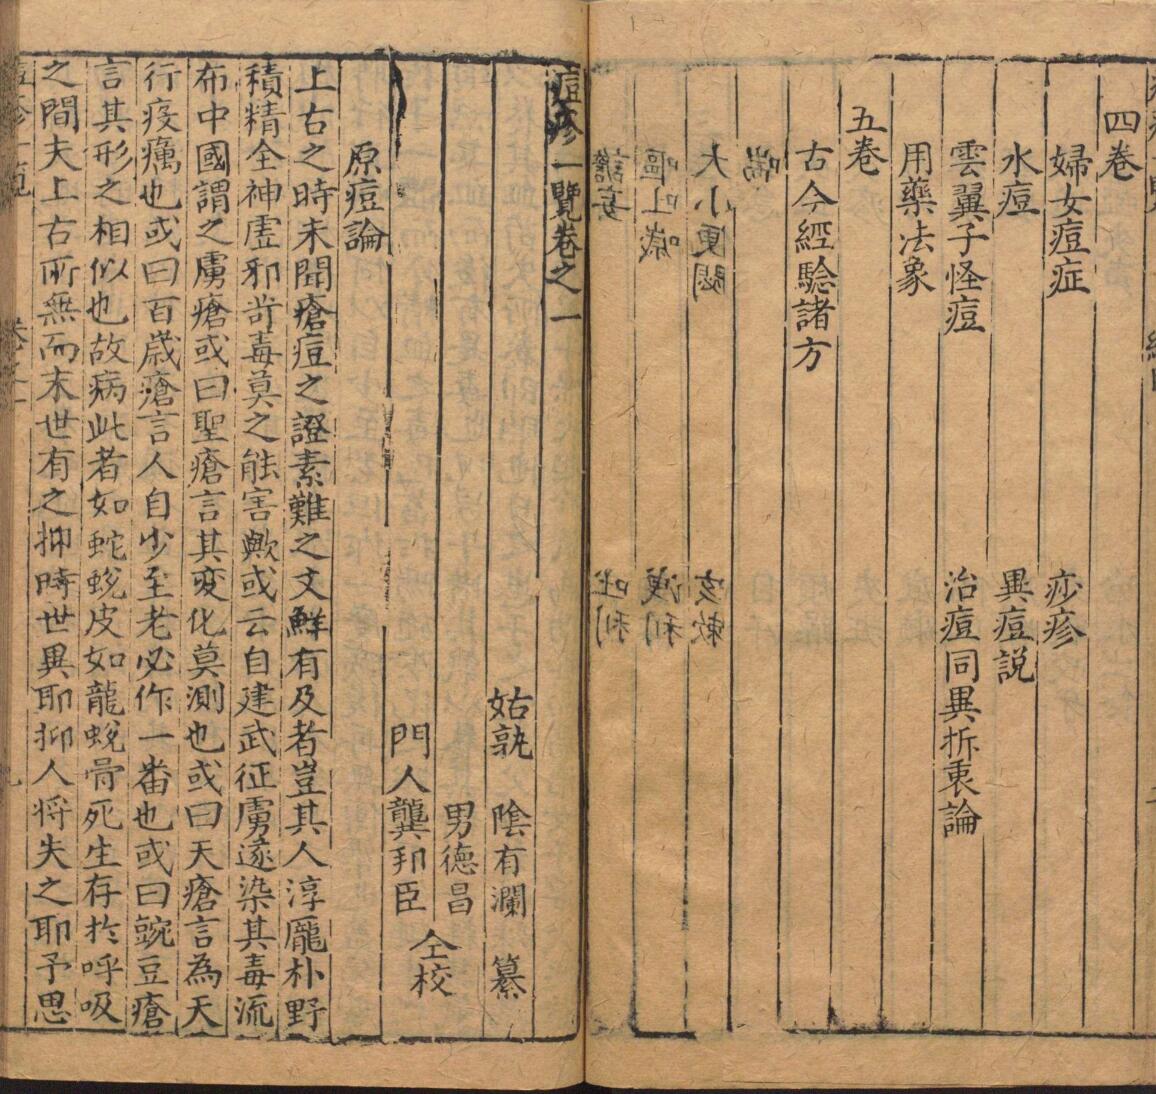 四卷
婦女痘症 疹疹
水痘 異痘説
雲翼子怪痘 治痘同異折衷論
用藥法象
五卷
古今經驗諸方
喘 
大小便閉 咳嗽
嘔吐噦 洩利
譫妄 吐利
痘疹一覽卷之一
姑孰 陰有瀾 纂
男德昌
門人龔邦臣 仝校
原痘論
上古之時未聞瘡痘之證素難之文鮮有及者豈其人淳龐朴野
積精全神虛邪苛毒莫之能害歟或云自建武征虜遂染其毒流
布中國謂之虜瘡或曰聖瘡言其変化莫測也或曰天瘡言為天
行疫癘也或曰百歲瘡言人自少至老必作一畨也或曰豌豆瘡
言其形之相似也故病此者如蛇蛻皮如龍蛻骨死生存於呼吸
之間夫上古所無而末世有之抑時世異耶抑人將失之耶予思
痘疹一覽 卷之一